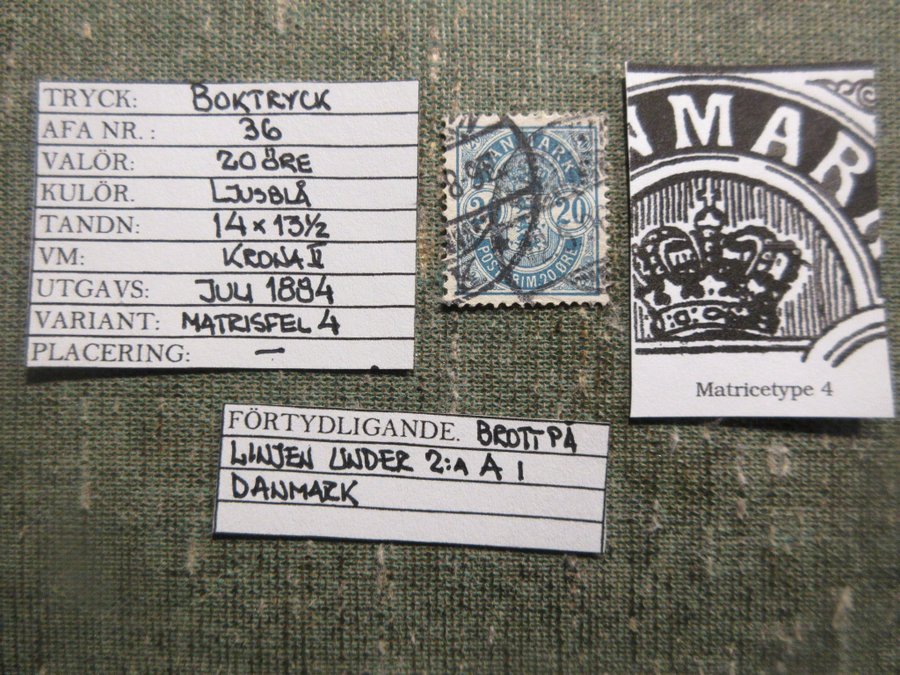 TRYCK: BOKTRYCK
AFA NR. : 36
VALÖR: 20 ÖRE
KULÖR. LJUSBLÅ
TANDN: 14 x 13½
VM: KRONA II
UTGAVS: JULI 1894
VARIANT: MATRISFEL 4
PLACERING: —
DANMARK
20 20
POSTFRIM. 20 ØRE.
NMAR
Matricetype 4
FÖRTYDLIGANDE. BROTT PÅ
LINJEN UNDER 2:A A I
DANMARK